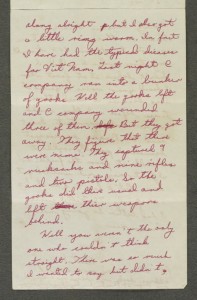 along alright but I also got
a little ring worm. In fact
I have had the typical disease
for Viet Nam. Last night C
company ran into a bunker
of gooks. Well the gooks left
and C company wounded
three of them. But they got
away. They figure that there
were nine. They captured 9
rucksacks and nine rifles
and two pistols. So the
gooks did this and
left their weapons
behind.
Well you weren't the only
one who couldn't think
straight. There was so much
I wanted to say but didn't